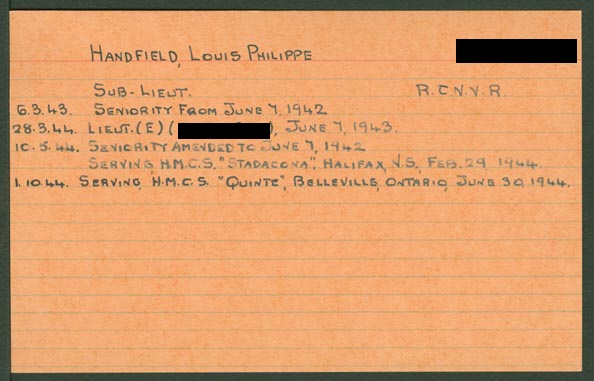 HANDFIELD, LOUIS PHILIPPE
SUB-LIEUT. R.C.N.V.R.
6.3.43. SENIORITY FROM JUNE 7, 1942
28.3.44. LIEUT.(E) ( ), JUNE 7, 1943.
10.5.44. SENIORITY AMENDED TO JUNE 7, 1942
SERVING H.M.C.S. "STADACONA", HALIFAX, N.S. FEB. 29, 1944.
1.10.44. SERVING, H.M.C.S. "QUINTE", BELLEVILLE, ONTARIO, JUNE 30, 1944.